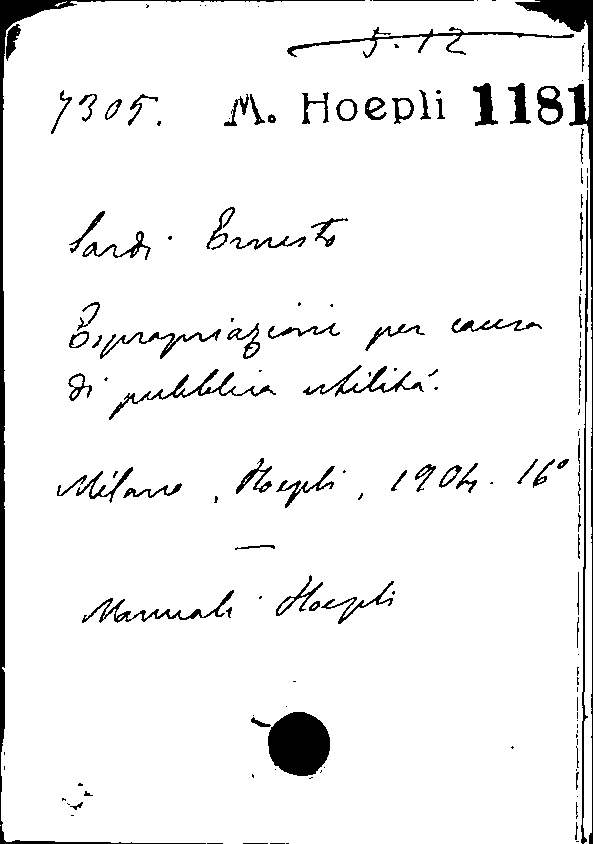 5.12
7305. M. Hoepli 1181
Sardi Ernesto
Espropriazioni per causa
di pubblica utilità.
Milano, Hoepli, 1904. 16°
—
Manuali Hoepli